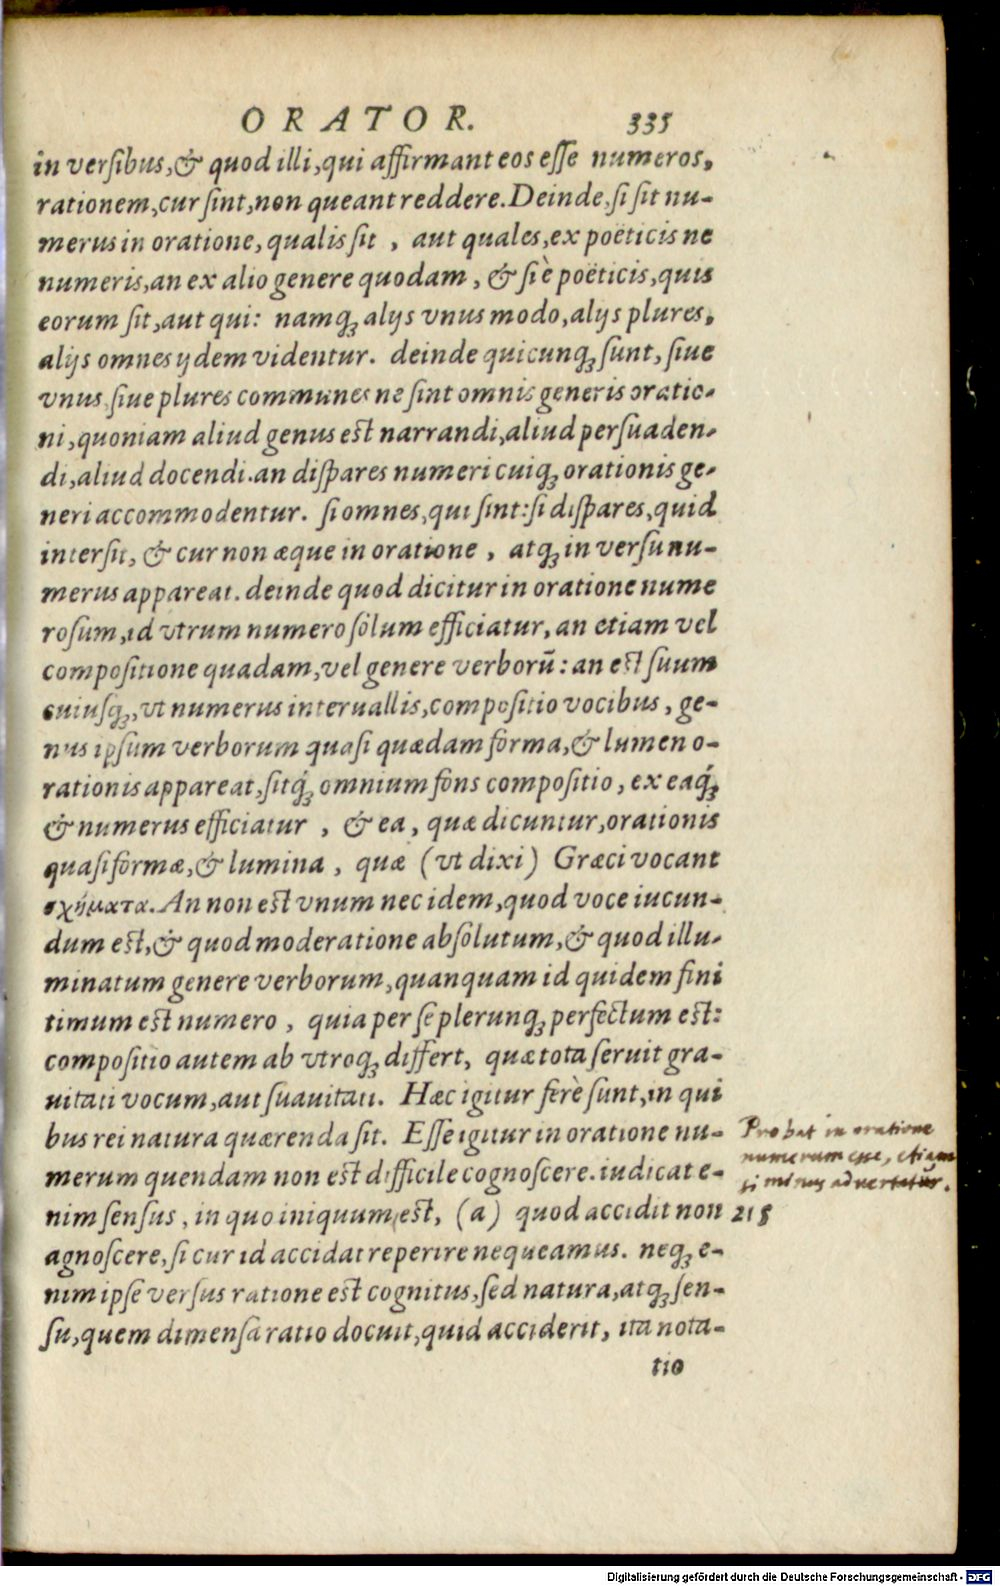 ORATOR. 335
in verſibus, & quod illi, qui affirmant eos eſſe numeros,
rationem, cur ſint, non queant reddere. Deinde, ſi ſit nu-
merus in oratione, qualis ſit, aut quales, ex poëticis ne
numeris, an ex alio genere quodam, & ſi è poëticis, quis
eorum ſit, aut qui: namq; alijs vnus modo, alijs plures,
alijs omnes ijdem videntur. deinde quicunq; ſunt, ſiue
vnus, ſiue plures communes ne ſint omnis generis oratio-
ni, quoniam aliud genus est narrandi, aliud perſuaden-
di, aliud docendi. an diſpares numeri cuiq; orationis ge-
neri accommodentur. ſi omnes, qui ſint: ſi diſpares, quid
interſit, & cur non æque in oratione, atq; in verſu nu-
merus appareat. deinde quod dicitur in oratione nume
roſum, id vtrum numero ſolum efficiatur, an etiam vel
compoſitione quadam, vel genere verborū: an est ſuum
cuiuſq;, vt numerus interuallis, compoſitio vocibus, ge-
nus ipſum verborum quaſi quædam forma, & lumen o-
rationis appareat, ſitq́; omnium fons compoſitio, ex eaq́;
& numerus efficiatur, & ea, quæ dicuntur, orationis
quaſi formæ, & lumina, quæ (vt dixi) Græci vocant
σχήματα. An non est vnum nec idem, quod voce iucun-
dum est, & quod moderatione abſolutum, & quod illu-
minatum genere verborum, quanquam id quidem fini
timum est numero, quia per ſe plerunq; perfectum est:
compoſitio autem ab vtroq; differt, quæ tota ſeruit gra-
uitati vocum, aut ſuauitati. Hæc igitur ferè ſunt, in qui
bus rei natura quærenda ſit. Eſſe igitur in oratione nu-
merum quendam non est difficile cognoſcere. iudicat e-
nim ſenſus, in quo iniquum est, (a) quod accidit non
agnoſcere, ſi cur id accidat reperire nequeamus. neq; e-
nim ipſe verſus ratione est cognitus, ſed natura, atq; ſen-
ſu, quem dimenſa ratio docuit, quid acciderit, ita nota-
tio
Probat in oratione
numerum esse, etiam
si minus advertatur.
218
Digitalisierung gefördert durch die Deutsche Forschungsgemeinschaft - DFG